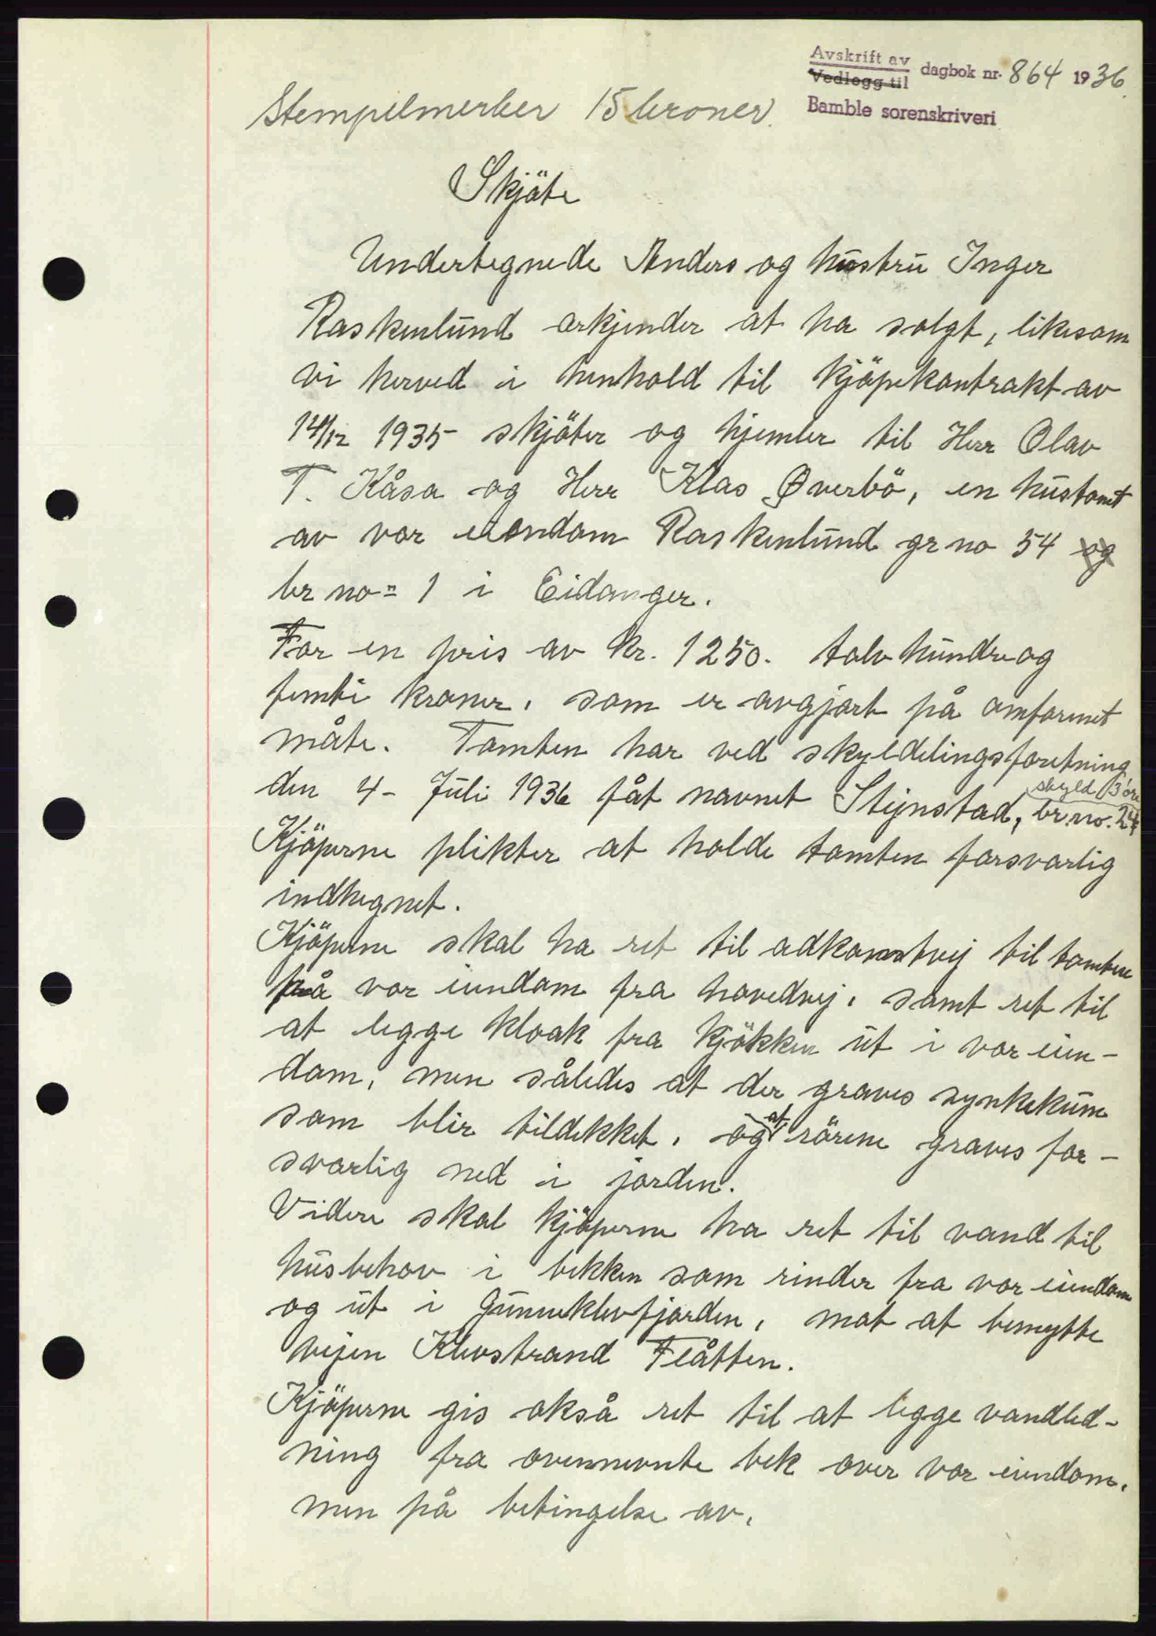 Avskrift av
Vedlegg til dagbok nr. 864 1936.
Bamble sorenskriveri
Stempelmerker 15 kroner.
Skjöte
Undertegnede Anders og hustru Inger
Raskenlund erkjender at ha solgt, likesom
vi herved i henhold til kjöpekontrakt av
14/12 1935 skjöter og hjemler til Herr Olav
T. Kåsa og Herr Klas Øverbö, en hustomt
av vor eiendom Raskenlund gr no 54 og
br no = 1 i Eidanger.
For en pris av kr. 1250. tolv hundre og
femti kroner, som er avgjort på omforenet
måte. Tomten har ved skyldelingsforetning
den 4 - Juli 1936 fåt navnet Stejnstad, skyld 3 öre br. no. 24
Kjöperne plikter at holde tomten forsvarlig
indhegnet.
Kjöperne skal ha ret til adkomstvej til tomten
på vor eiendom fra hovedvej, samt ret til
at legge kloak fra kjökken ut i vor eien-
dom, men således at der graves synkekum
som blir tildekket, og at rörene graves for-
svarlig ned i jorden.
Videre skal kjöperne ha ret til vand til
husbehov i bekken som rinder fra vor eiendom
og ut i Gunneklevfjorden, mot at benytte
vejen Klevstrand Flåtten.
Kjöperne gis också ret til at legge vandled-
ning fra ovennevnte bek over vor eiendom,
men på betingelse av,